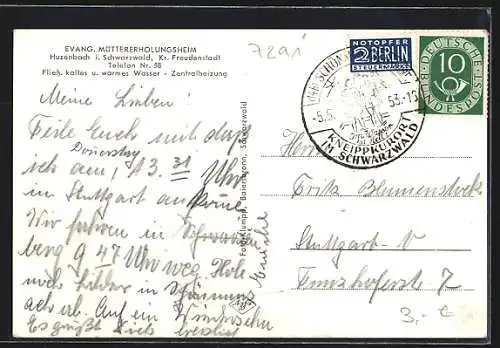 EVANG. MÜTTERERHOLUNGSHEIM
Huzenbach i. Schwarzwald, Kr. Freudenstadt
Telefon Nr. 58
Fließ. kaltes u. warmes Wasser - Zentralheizung
7291
Meine Lieben!
Teile Euch mit daß
Donnerstag
ich am, 13.31 Uhr
in Stuttgart ankomme
Wir fahren in
berg 9 47 Uhr weg. Hole
noch
ab. Auf ein Wiedersehn
Es grüßt Euch herzlich
Baiersbronn, Schwarzwald
NOTOPFER
2 BERLIN
STEUERMARKE
DEUTSCHE BUNDESPOST
10
-5.5. 53.-15
KNEIPPKURORT
IM SCHWARZWALD
Herrn
Fritz Blumenstock
Stuttgart-
7
3,- €